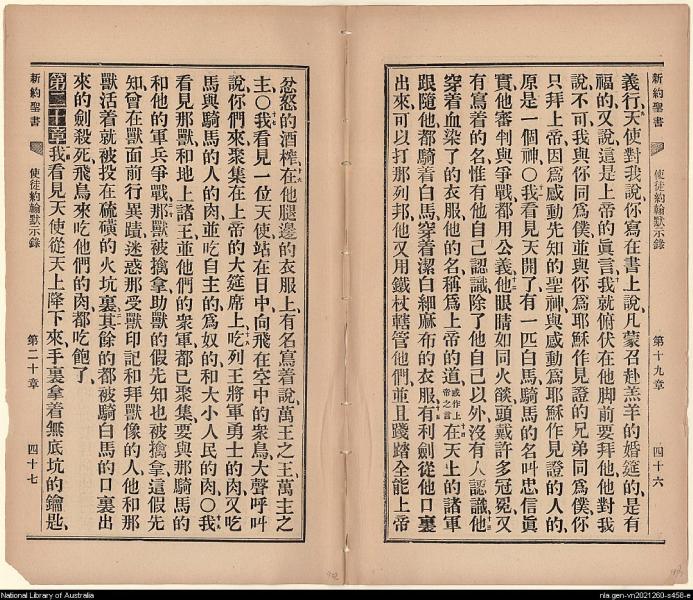 新約聖書 使徒約翰默示錄 第十九章 四十六
義行天使對我說你寫在書上說凡蒙召赴羔羊的婚筵的是有
福的又說這是上帝的眞言我就俯伏在他脚前要拜他他對我
說不可我與你同爲僕並與你爲耶穌作見證的兄弟同爲僕你
只拜上帝因爲感動先知的聖神與感動爲耶穌作見證的人的
原是一個神○我看見天開了有一匹白馬騎馬的名叫忠信眞
實他審判與爭戰都用公義他眼睛如同火燄頭戴許多冠冕又
有寫着的名惟有他自己認識除了他自己以外沒有人認識他
穿着血染了的衣服他的名稱爲上帝的道或作上帝之言在天上的諸軍
跟隨他都騎着白馬穿着潔白細麻布的衣服有利劍從他口裏
出來可以打那列邦他又用鐵杖轄管他們並且踐踏全能上帝
忿怒的酒榨在他腿邊的衣服上有名寫着說萬王之王萬主之
主○我看見一位天使站在日中向飛在空中的衆鳥大聲呼叫
說你們來聚集在上帝的大筵席上吃列王將軍勇士的肉又吃
馬與騎馬的人的肉並吃自主的爲奴的和大小人民的肉○我
看見那獸和地上諸王並他們的衆軍都已聚集要與那騎馬的
和他的軍兵爭戰那獸被擒拿助獸的假先知也被擒拿這假先
知曾在獸面前行異蹟迷惑那受獸印記和拜獸像的人他和那
獸活着就被投在硫磺的火坑裏其餘的都被騎白馬的口裏出
來的劍殺死飛鳥來吃他們的肉都吃飽了
第二十章我看見天使從天上降下來手裏拿着無底坑的鑰匙
新約聖書 使徒約翰默示錄 第二十章 四十七
National Library of Australia
nla.gen-vn2021260-s458-e